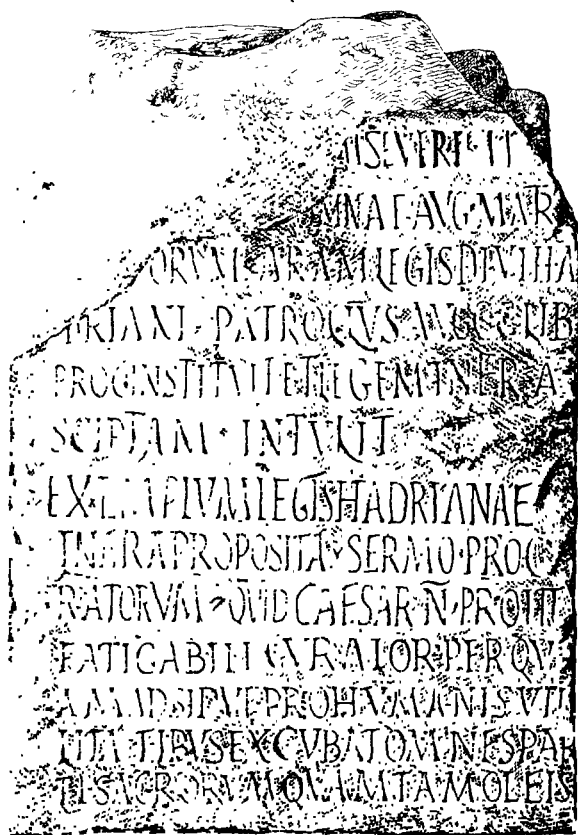 SEVERI ET
MNAE AVG · MATR
ORVM ARAM LEGIS DIVI HA
DRIANI · PATROCLVS AVGGG LIB
PROC INSTITVIT ET LEGEM INFRA
SCIPTAM · INTVLIT
EXEMPLVM LEGIS HADRIANAE
IN ARA PROPOSITA · SERMO · PROC
RATORVM QVID CAESAR N̄ · PRO
FATIGABILI PER QV
AM ADSIDVE PRO HVMANIS VTI
LITATIBVS EXCVBAT OMNES PAR
TIS AGRORVM QVAM TAM OLEIS